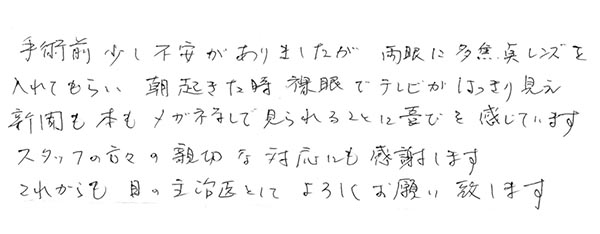 手術前少し不安がありましたが 両眼に多焦点レンズを
入れてもらい 朝起きた時 裸眼でテレビがはっきり見え
新聞も本もメガネなしで見られることに喜びを感じています
スタッフの方々の親切な対応にも感謝します
これからも 目の主治医として よろしくお願い致します